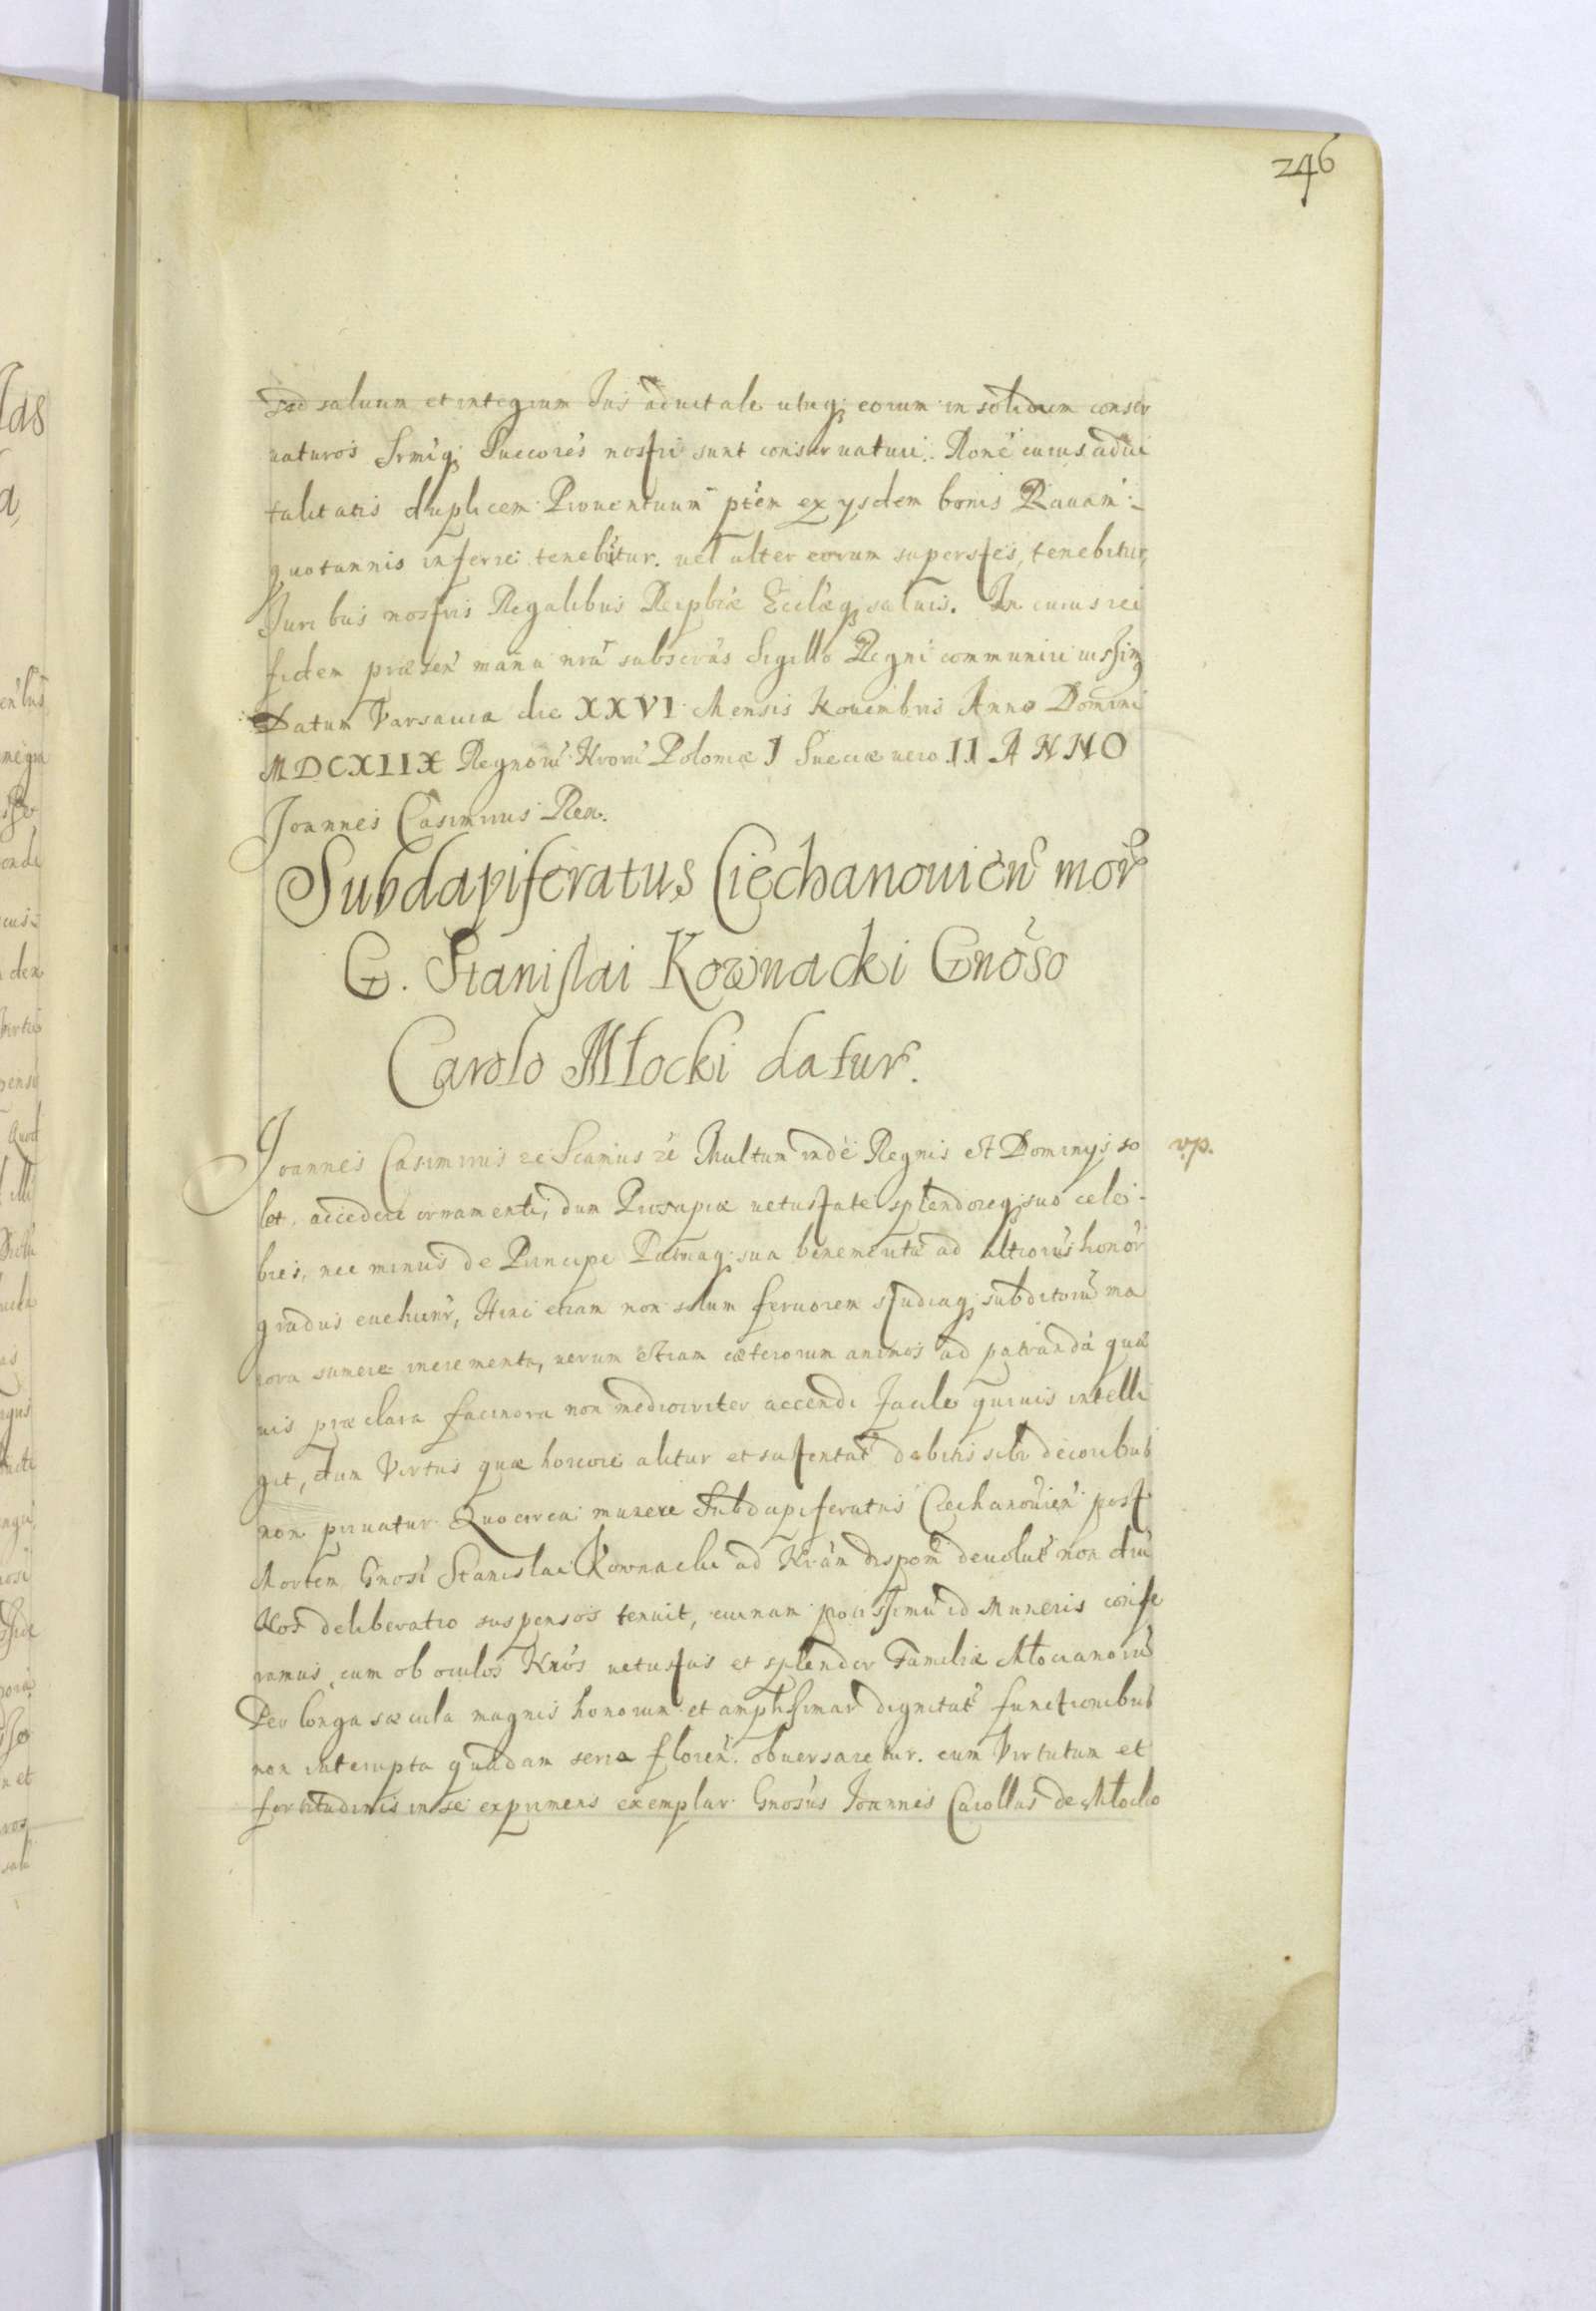 246
sed saluum et integrum Ius aduitale utuq; eorum in solidum conser
uaturos Srmiq; Succores nostri sunt conseruaturi. Rone cuius adui
talitatis duplicem Prouentuum ptem ex ysdem bonis Rauam:
quotannis inferre tenebitur. uel alter eorum superstes, tenebitur,
Iuribus nostris Regalibus Reipblcæ Ecclæq; saluis. In cuius rei
fidem præsen manu nra subscras Sigillo Regni communiri iussim9
Datum Varsauia die XXVI Mensis Nouembris Anno Domini
MDCXIIX Regnoru Nroru Poloniæ I Sueciæ uero II ANNO
Joannes Casimirus Rex.
Subdapiferatus Ciechanouien mor
G. Stanislai Kownacki Gnoso
Carolo Młocki datur.
Joannes Casimirus &c Scamius &c Multum inde Regnis et Dominys so
let, accedere ornamenti, dum Prosapiæ uetustate splendoreq; suo cele-
bres, nec minus de Principe Patriaq; sua benemeriti ad altioru honor
gradus euehunr, Hinc etiam non solum feruorem studiaq; subditoru ma
iora sumere incrementa, uerum etiam cæterorum animos ad patranda quæ
uis præclara facinora non mediocriter accendi facile quiuis intelli
git, dum Virtus quæ honore alitur et sustentat debitis sibi decoribus
non priuatur. Quocirca munere Subdapiferatus Ciechanouien post
Mortem Gnosi Stanislai Kownacki ad Nram dispom deuolut non diu
Nos deliberatio suspensos tenuit, cuinam potissimu id Muneris confe
ramus, cum ob oculos Nros uetustas et splendor Familiæ Młocianoru
Per longa sæcula magnis honorum et amplissimar dignitat functionibus
non interrupta quadam serie floren. obuersaretur. cum Virtutum et
fortitudinis in se exprimens exemplar Gnosus Joannes Carollus de Młocko
v.p.